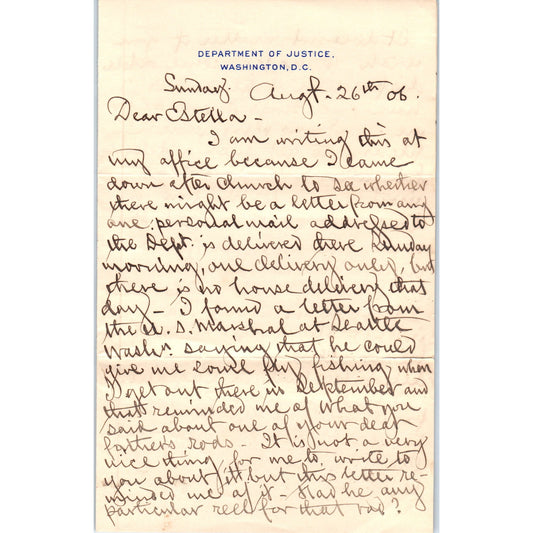 DEPARTMENT OF JUSTICE,
WASHINGTON, D.C.
Sunday. Augt. 26th 06.
Dear Estella -
I am writing this at
my office because I came
down after church to see whether
there might be a letter from any
one, personal mail addressed to
the Dept. is delivered there Sunday
morning, one delivery only, but
there is no house delivery that
day - I found a letter from
the U. S. Marshal at Seattle
Washn. saying that he could
give me some fly fishing when
I get out there in September and
that reminded me of what you
said about one of your dear
father's rods - It is not a very
nice thing for me to write to
you about it but this letter re-
minded me of it - Had he any
particular reel for that rod?